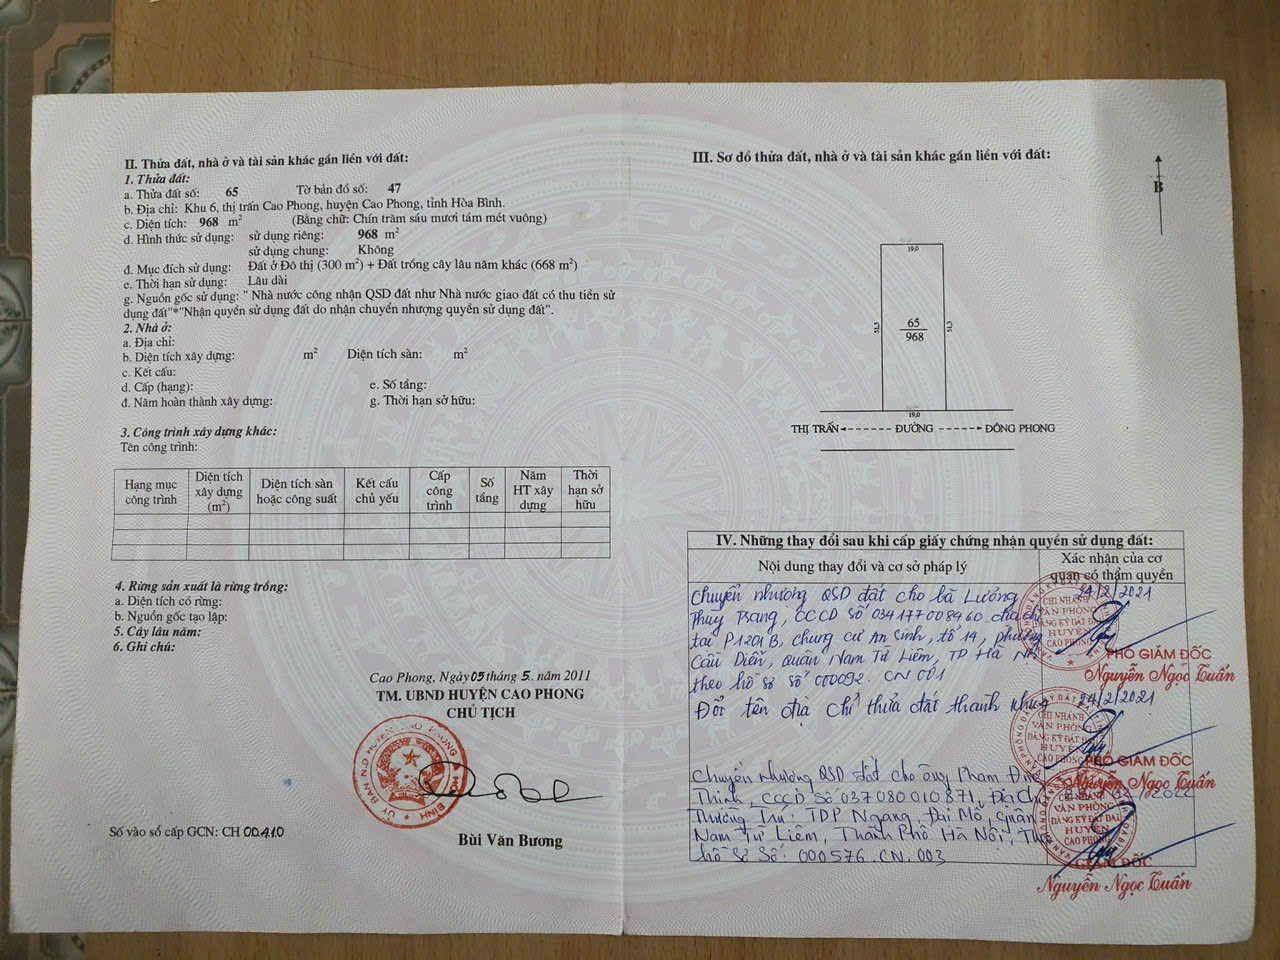 II. Thửa đất, nhà ở và tài sản khác gắn liền với đất:
1. Thửa đất:
a. Thửa đất số: 65 Tờ bản đồ số: 47
b. Địa chỉ: Khu 6, thị trấn Cao Phong, huyện Cao Phong, tỉnh Hòa Bình.
c. Diện tích: 968 m² (Bằng chữ: Chín trăm sáu mươi tám mét vuông)
d. Hình thức sử dụng: sử dụng riêng: 968 m²
sử dụng chung: Không
đ. Mục đích sử dụng: Đất ở Đô thị (300 m²) + Đất trồng cây lâu năm khác (668 m²)
e. Thời hạn sử dụng: Lâu dài
g. Nguồn gốc sử dụng: " Nhà nước công nhận QSD đất như Nhà nước giao đất có thu tiền sử
dụng đất"*"Nhận quyền sử dụng đất do nhận chuyển nhượng quyền sử dụng đất".
2. Nhà ở:
a. Địa chỉ:
b. Diện tích xây dựng: m² Diện tích sàn: m²
c. Kết cấu:
d. Cấp (hạng): e. Số tầng:
đ. Năm hoàn thành xây dựng: g. Thời hạn sở hữu:
3. Công trình xây dựng khác:
Tên công trình:
Hạng mục công trình
Diện tích xây dựng (m²)
Diện tích sàn hoặc công suất
Kết cấu chủ yếu
Cấp công trình
Số tầng
Năm HT xây dựng
Thời hạn sở hữu
4. Rừng sản xuất là rừng trồng:
a. Diện tích có rừng:
b. Nguồn gốc tạo lập:
5. Cây lâu năm:
6. Ghi chú:
Cao Phong, Ngày 05 tháng 5. năm 2011
TM. UBND HUYỆN CAO PHONG
CHỦ TỊCH
Bùi Văn Bương
Số vào sổ cấp GCN: CH 00410
III. Sơ đồ thửa đất, nhà ở và tài sản khác gắn liền với đất:
B
19,0
51,3
65
968
51,3
19,0
THỊ TRẤN ĐƯỜNG ĐÔNG PHONG
IV. Những thay đổi sau khi cấp giấy chứng nhận quyền sử dụng đất:
Nội dung thay đổi và cơ sở pháp lý
Xác nhận của cơ quan có thẩm quyền
Chuyển nhượng QSD đất cho bà Lương
Thùy Trang, CCCD số 034177008460 địa chỉ
tại P1201B, chung cư An Sinh, tổ 14, phường
Cầu Diễn, quận Nam Từ Liêm, TP Hà Nội
theo hồ sơ số 000092. CN 001
24/2/2021
CHI NHÁNH
VĂN PHÒNG
ĐĂNG KÝ ĐẤT ĐAI
HUYỆN
CAO PHONG
PHÓ GIÁM ĐỐC
Nguyễn Ngọc Tuấn
Đổi tên địa chỉ thửa đất thành khu
24/2/2021
CHI NHÁNH
VĂN PHÒNG
ĐĂNG KÝ ĐẤT ĐAI
HUYỆN
CAO PHONG
PHÓ GIÁM ĐỐC
Nguyễn Ngọc Tuấn
Chuyển nhượng QSD đất cho ông Phạm Đức
Thịnh, CCCD Số 037080010871, Địa chỉ
Thường Trú: TDP Ngang, Đại Mỗ, Quận
Nam Từ Liêm, Thành Phố Hà Nội, Theo
hồ sơ Số: 000576.CN.003
CHI NHÁNH
VĂN PHÒNG
ĐĂNG KÝ ĐẤT ĐAI
HUYỆN
CAO PHONG
GIÁM ĐỐC
Nguyễn Ngọc Tuấn